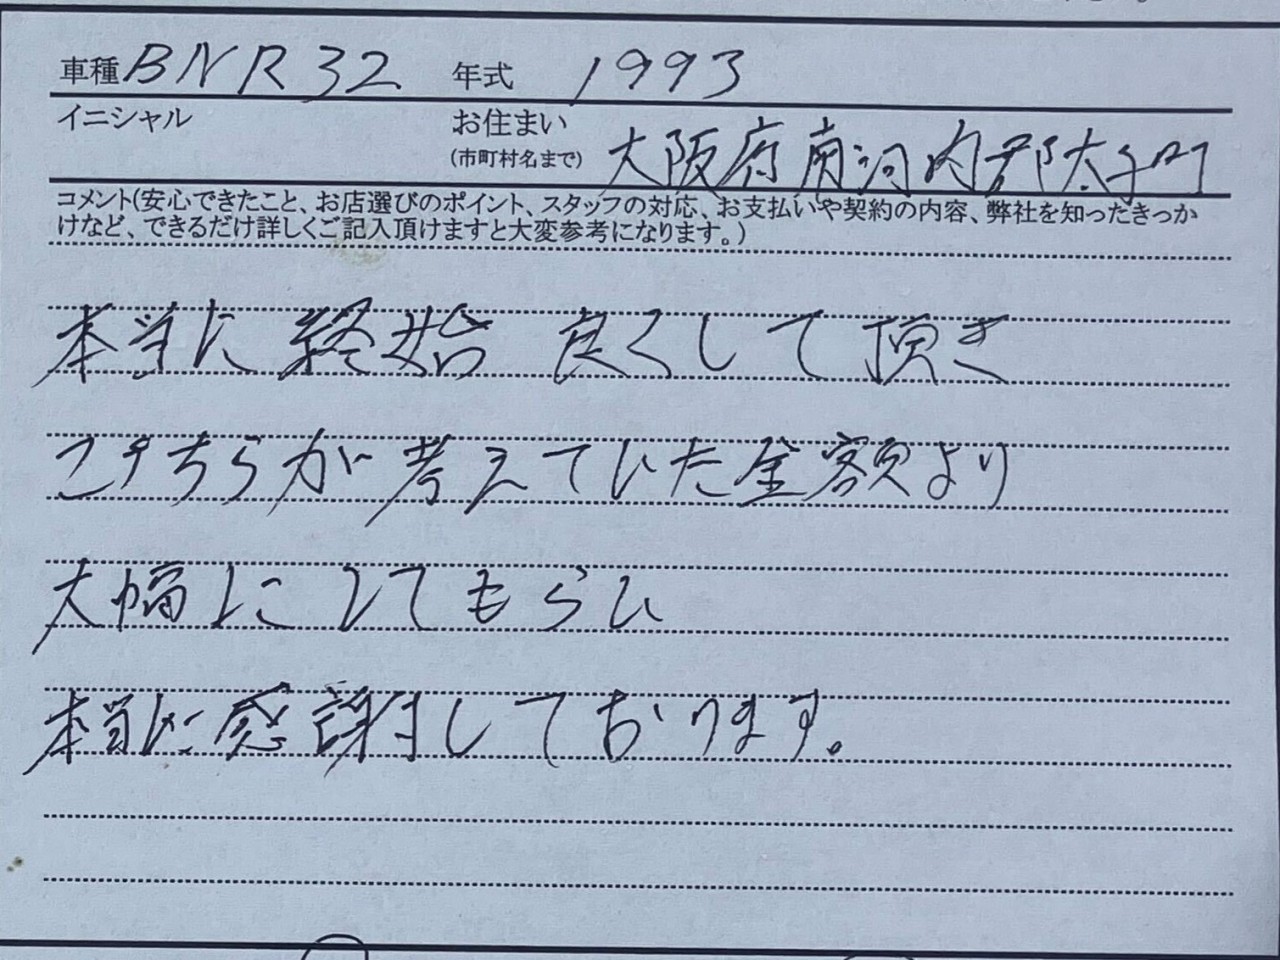 車種 BNR32 年式 1993
イニシャル お住まい
(市町村名まで) 大阪府南河内郡太子町
コメント(安心できたこと、お店選びのポイント、スタッフの対応、お支払いや契約の内容、弊社を知ったきっか
けなど、できるだけ詳しくご記入頂けますと大変参考になります。)
本当に終始 良くして頂き
こちらが考えていた金額より
大幅にしてもらい
本当に感謝しております。